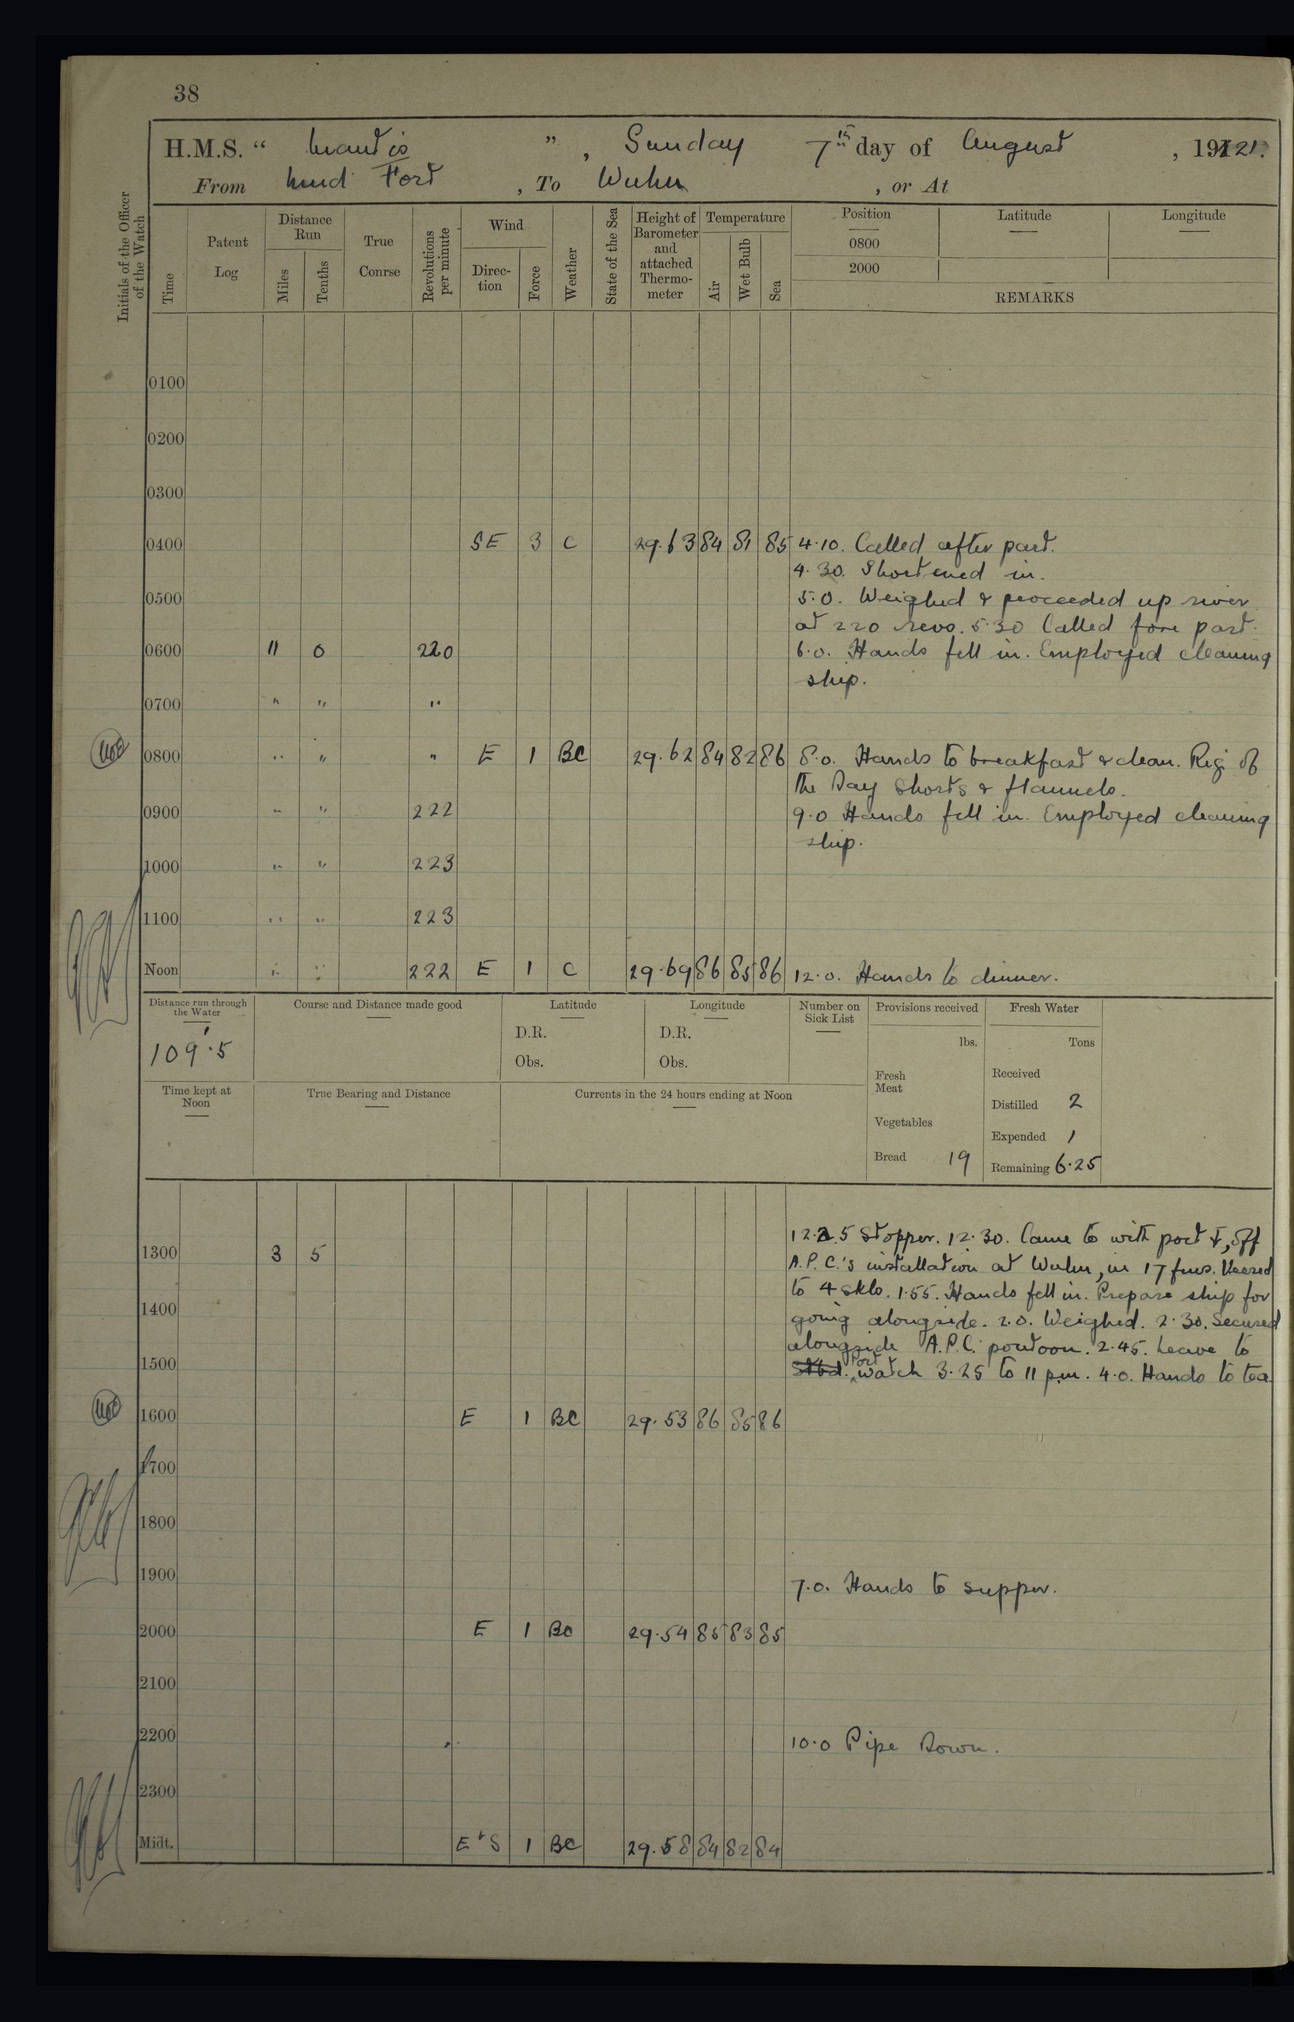 38
H.M.S. “ Mantis ” , Sunday 7th day of August , 1921.
From Mud Fort , To Wuhu , or At
Initials of the Officer of the Watch
Time
Patent Log
Distance Run
Miles
Tenths
True Course
Revolutions per minute
Wind
Direction
Force
Weather
State of the Sea
Height of Barometer and attached Thermometer
Temperature
Air
Wet Bulb
Sea
Position
0800
2000
Latitude
Longitude
REMARKS
0100
0200
0300
0400 SE 3 C 29.63 84 81 85 4.10. Called after part.
4.30. Shortened in.
0500 5.0. Weighed & proceeded up river
at 220 revs. 5.30 Called fore part.
0600 11 0 220 6.0. Hands fell in. Employed cleaning
ship.
0700 " " "
0800 " " " E 1 BC 29.62 84 82 86 8.0. Hands to breakfast & clean. Rig of
the Day Shorts & flannels.
0900 " " 222 9.0 Hands fell in. Employed cleaning
ship.
1000 " " 223
1100 " " 223
Noon " " 222 E 1 C 29.69 86 85 86 12.0. Hands to dinner.
Distance run through the Water
109.5
Course and Distance made good
Latitude
D.R.
Obs.
Longitude
D.R.
Obs.
Number on Sick List
Provisions received
lbs.
Fresh Meat
Vegetables
Bread 19
Fresh Water
Tons
Received
Distilled 2
Expended 1
Remaining 6.25
Time kept at Noon
True Bearing and Distance
Currents in the 24 hours ending at Noon
12.25 Stopper. 12.30. Came to with port ⚓, off
1300 3 5 A.P.C.'s installation at Wuhu, in 17 fms. Veered
to 4 skls. 1.55. Hands fell in. Prepare ship for
1400 going alongside. 2.0. Weighed. 2.30. Secured
alongside A.P.C. pontoon. 2.45. Leave to
1500 Stbd. Port watch 3.25 to 11 p.m. 4.0. Hands to tea.
1600 E 1 BC 29.53 86 85 86
1700
1800
1900 7.0. Hands to supper.
2000 E 1 BC 29.54 85 83 85
2100
2200 10.0 Pipe Down.
2300
Midt. E'S 1 BC 29.58 84 82 84